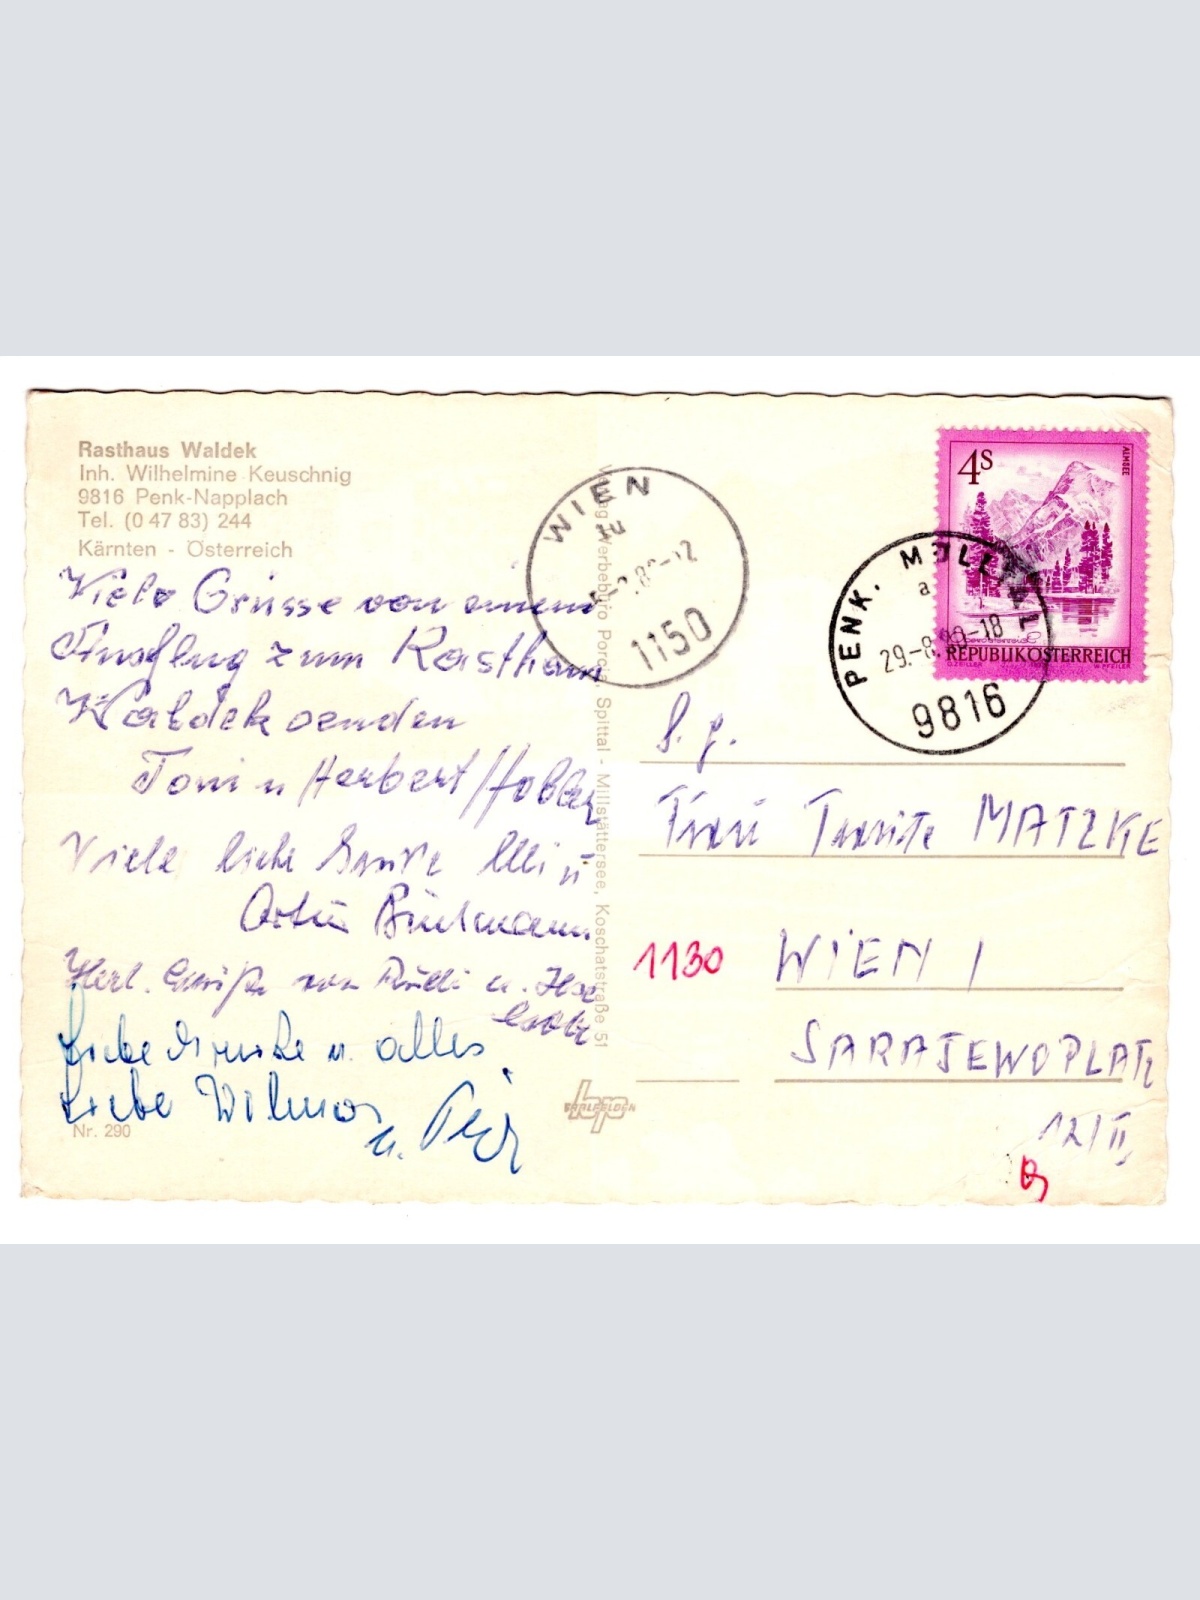 Rasthaus Waldek
Inh. Wilhelmine Keuschnig
9816 Penk-Napplach
Tel. (0 47 83) 244
Kärnten - Österreich
Viele Grüsse von einem
Ausflug zum Rasthaus
Waldek senden
Toni u Herbert
Viele liebe Grüße Elli u
Artur
Herl. Grüße von Rudi u.
Liebe Grüsse u. alles
Liebe Wilma
u.
Nr. 290
Verlag Werbebüro Porcia, Spittal - Millstättersee, Koschatstraße 51
SAALFELDEN
WIEN
1150
4S
ALMSEE
REPUBLIK ÖSTERREICH
PENK. MÖLLTAL
a
29.-8. -18
9816
S. g.
Frau MATZKE
1130 WIEN 1
SARAJEWOPLATZ
12/II